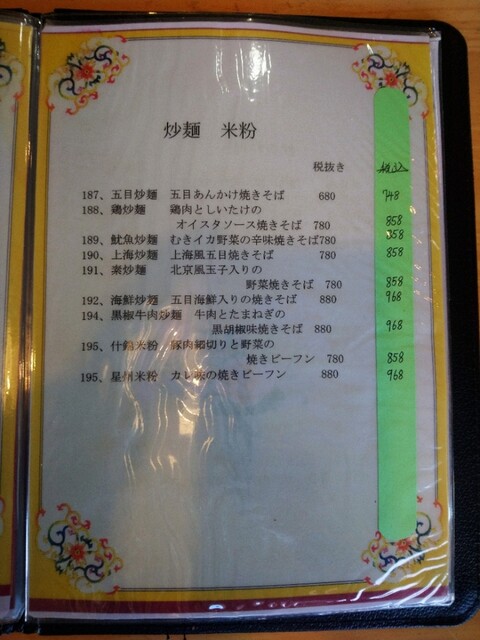 炒麺 米粉
税抜き 税込
187、五目炒麺 五目あんかけ焼きそば 680 748
188、鶏炒麺 鶏肉としいたけの
オイスタソース焼きそば 780 858
189、魷魚炒麺 むきイカ野菜の辛味焼きそば780 858
190、上海炒麺 上海風五目焼きそば 780 858
191、素炒麺 北京風玉子入りの
野菜焼きそば 780 858
192、海鮮炒麺 五目海鮮入りの焼きそば 880 968
194、黒椒牛肉炒麺 牛肉とたまねぎの
黒胡椒味焼きそば 880 968
195、什錦米粉 豚肉細切りと野菜の
焼きビーフン 780 858
195、星州米粉 カレ味の焼きビーフン 880 968